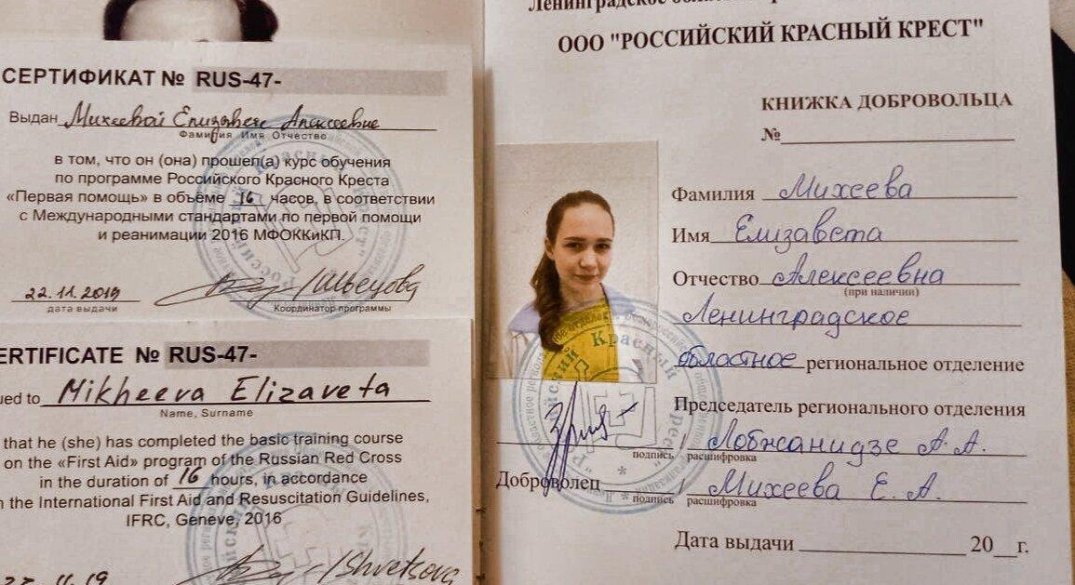 СЕРТИФИКАТ № RUS-47-
Выдан Михеевой Елизавете Алексеевне
Фамилия Имя Отчество
в том, что он (она) прошел(а) курс обучения
по программе Российского Красного Креста
«Первая помощь» в объеме 16 часов, в соответствии
с Международными стандартами по первой помощи
и реанимации 2016 МФОККиКП.
22.11.2019 /Швецова
дата выдачи Координатор программы
ERTIFICATE № RUS-47-
ued to Mikheeva Elizaveta
Name, Surname
that he (she) has completed the basic training course
on the «First Aid» program of the Russian Red Cross
in the duration of 16 hours, in accordance
the International First Aid and Resuscitation Guidelines,
IFRC, Geneve, 2016
22.11.19 /Shvetsova
Ленинградское
ООО "РОССИЙСКИЙ КРАСНЫЙ КРЕСТ"
КНИЖКА ДОБРОВОЛЬЦА
№
Фамилия Михеева
Имя Елизавета
Отчество Алексеевна
(при наличии)
Ленинградское
областное региональное отделение
Председатель регионального отделения
Лобжанидзе А.А.
подпись расшифровка
Доброволец Михеева Е.А.
подпись расшифровка
Дата выдачи 20 г.